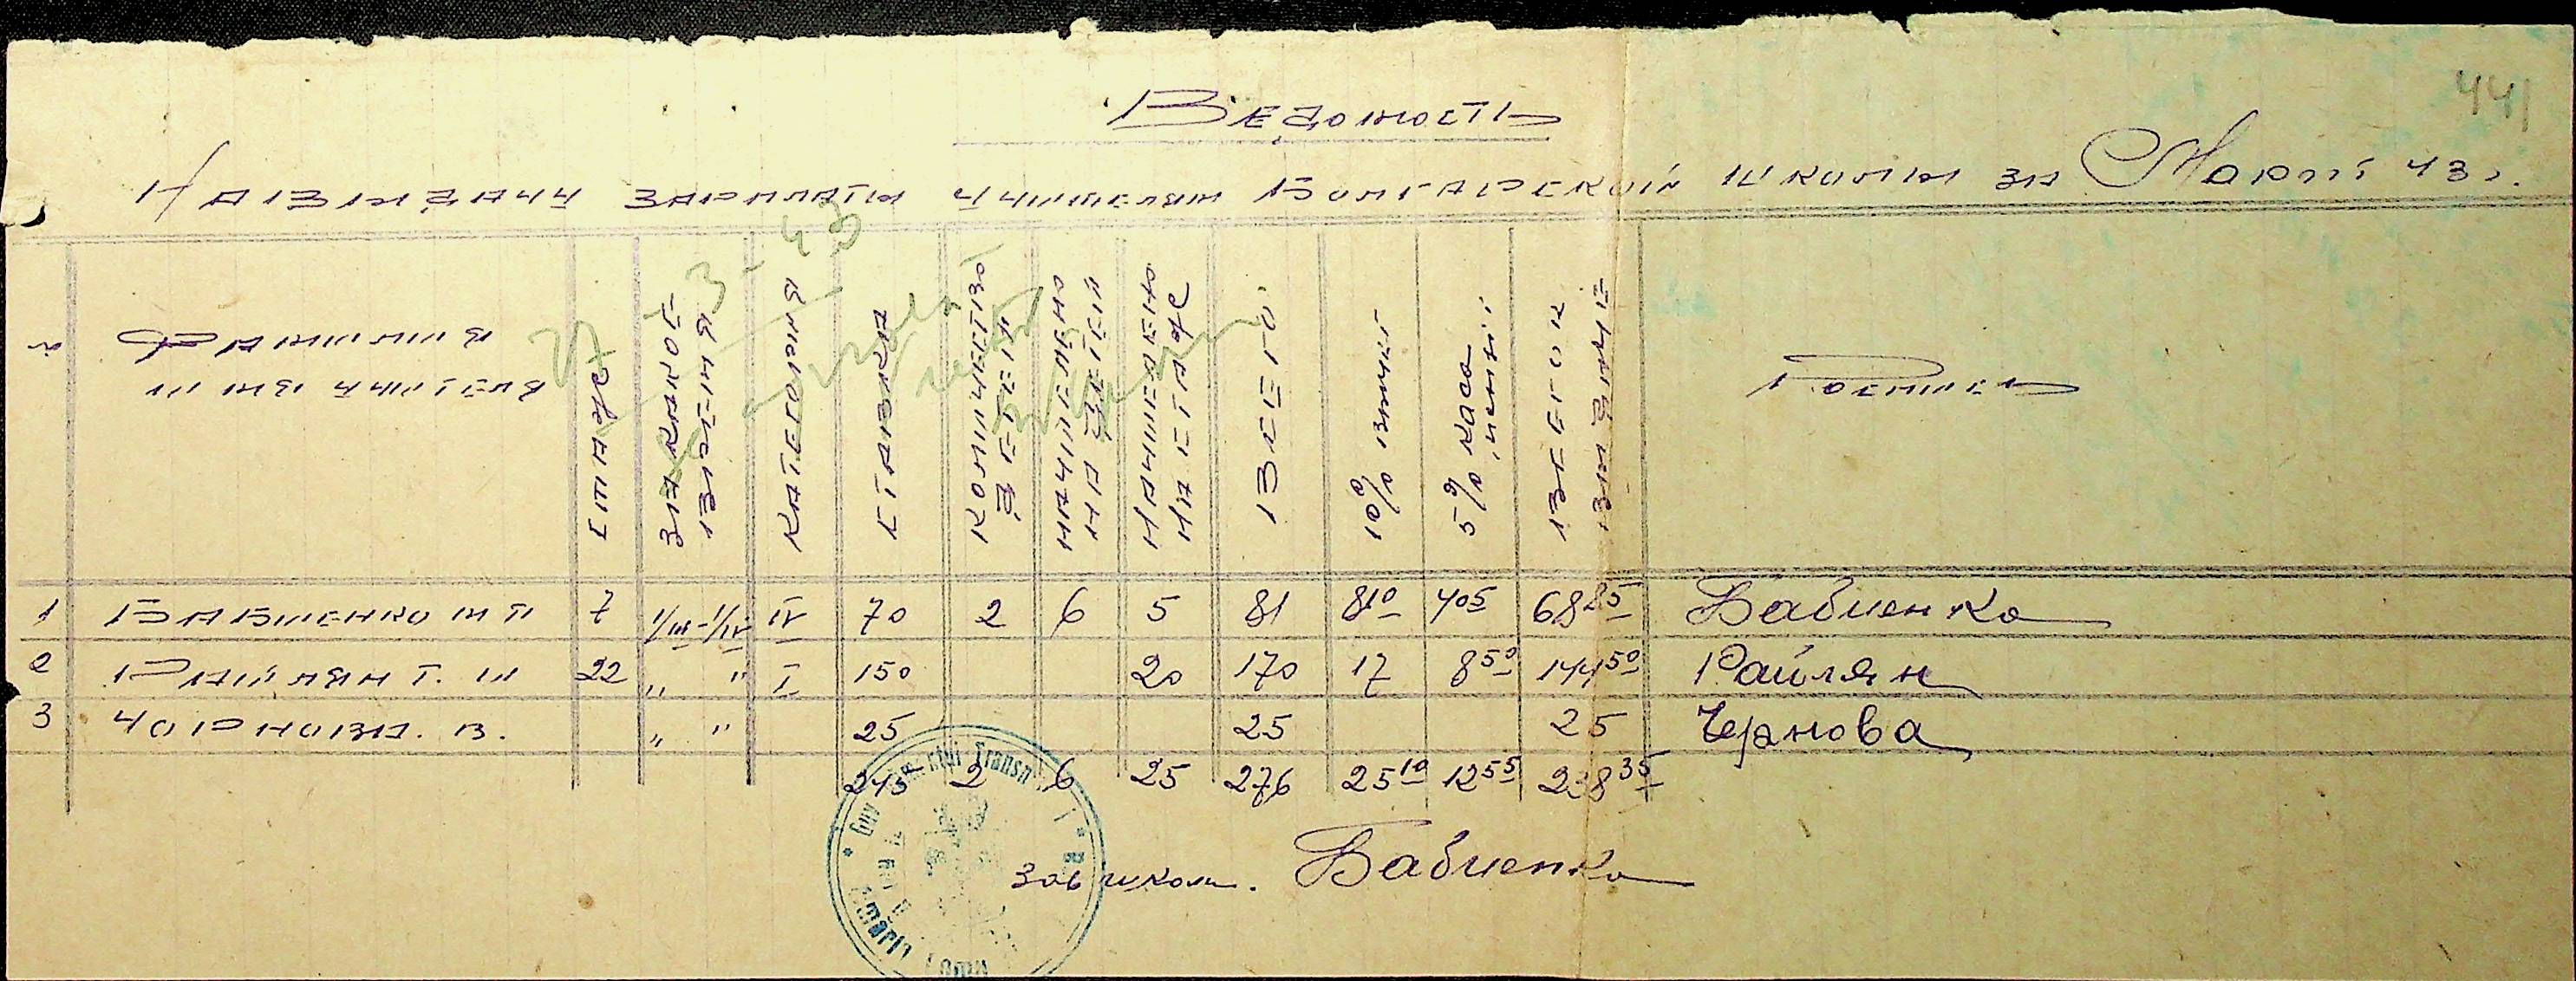 441
Ведомость
На выдачу зарплаты учителям Болгарской школы за Март 43 г.
27 - 3 - 43
№
Фамилия
и имя учител
Стаж
За какой
Категория
Ставка
Количество
Начислен
на
Начислено
на стаж
Всего
10%
5% касса
пенсии
Всего к
выдачи
Роспись
1 Бабиенко М П 7 1/III-1/IV IV 70 2 6 5 81 8 10 4 05 68 85 Бабиенко
2 Райлян Г. И 22 " " I 150 20 170 17 8 50 144 50 Райлян
3 Чорнова. В. " " 25 25 25 Чернова
245 2 6 25 276 25 10 12 55 238 35
Зав школ. Бабиенко
Primăria